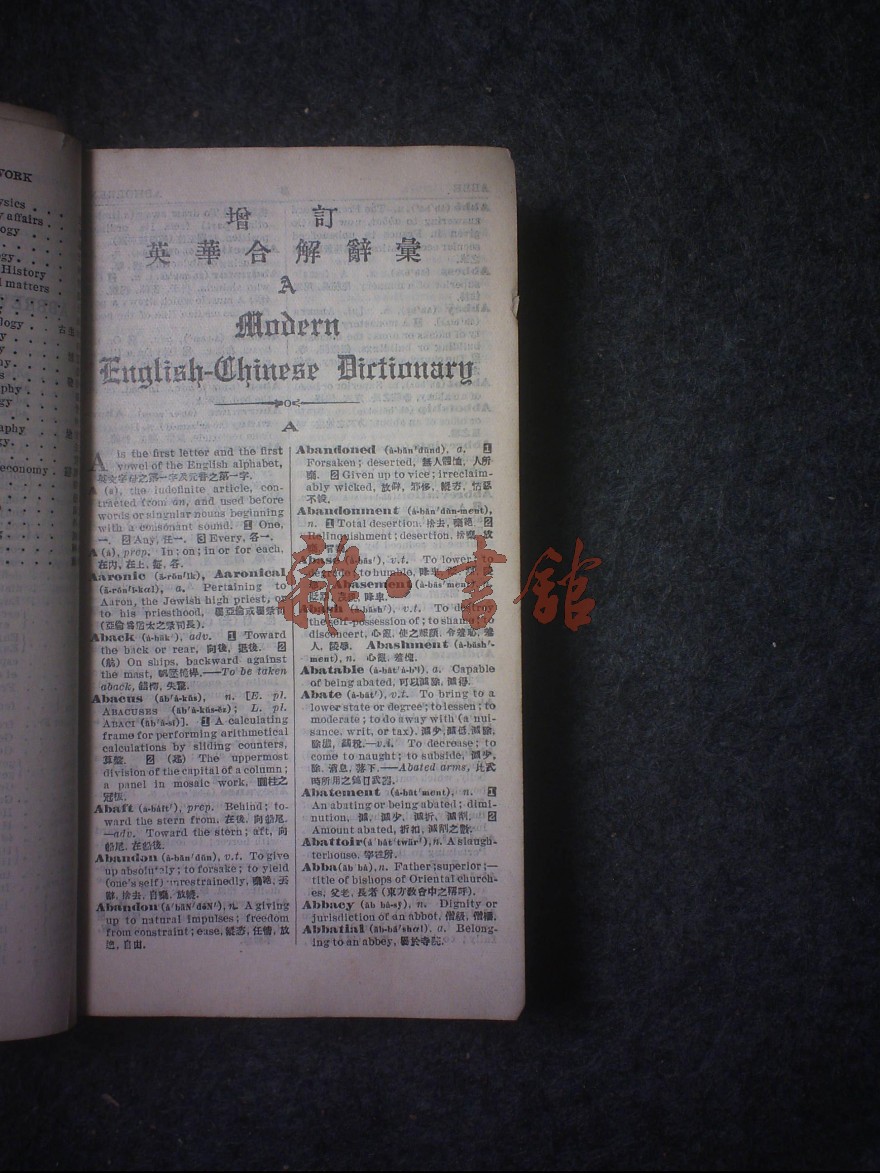 WORK
ysics
y affairs
ogy
gy
History
l matters
logy
y
y
hy
s
phy
gy
aphy
gy
economy
增訂
英華合解辭彙
A
Modern
English-Chinese Dictionary
A
A is the first letter and the first
vowel of the English alphabet,
英文字母之第一字及元音之第一字.
A (a), the indefinite article, con-
tracted from an, and used before
words or singular nouns beginning
with a consonant sound. 1 One,
一. 2 Any, 任一. 3 Every, 各一.
A (ȧ), prep. In; on; in or for each,
在內, 在上, 每, 各.
Aaronic (ā-rŏn'ĭk), Aaronical
(ā-rŏn'ĭ-kɑl), a. Pertaining to
Aaron, the Jewish high priest, or
to his priesthood,
Aback (ȧ-băk'), adv. 1 Toward
the back or rear, 向後, 退後. 2
(航) On ships, backward against
the mast, —To be taken
aback, 錯愕, 失驚.
Abacus (ăb'ȧ-kŭs), n. [E. pl.
ABACUSES (ăb'ȧ-kŭs-ĕz); L. pl.
ABACI (ăb'ȧ-sī)]. 1 A calculating
frame for performing arithmetical
calculations by sliding counters,
算盤. 2 (建) The uppermost
division of the capital of a column;
a panel in mosaic work, 圓柱之
冠板.
Abaft (ȧ-bȧft'), prep. Behind; to-
ward the stern from, 在後, 向船尾.
—adv. Toward the stern; aft, 向
船尾, 在船後.
Abandon (ȧ-băn'dŭn), v.t. To give
up absolutely; to forsake; to yield
(one's self) unrestrainedly,
捨去, 自棄, 放縱.
Abandon (ȧ'bäN'dôN'), n. A giving
up to natural impulses; freedom
from constraint; ease, 縱恣, 任情, 放
逸, 自由.
Abandoned (ȧ-băn'dŭnd), a. 1
Forsaken; deserted, 無人顧恤, 人所
棄. 2 Given up to vice; irreclaim-
ably wicked, 放僻, 邪侈, 縱恣, 怙惡
不悛.
Abandonment (ȧ-băn'dŭn-mĕnt),
n. 1 Total desertion, 捨去, 棄絶. 2
Relinquishment; desertion, 捨棄, 放
Abase (ȧ-bās'), v.t. To lower; to
degrade; to humble, 降卑,
Abasement (ȧ-bās'mĕnt), n.
降卑.
Abash (ȧ-băsh'), v.t. To destroy
the self-possession of; to shame; to
disconcert, 令羞恥, 羞
人, Abashment (ȧ-băsh'-
mĕnt), n. 羞愧.
Abatable (ȧ-bāt'ȧ-b'l), a. Capable
of being abated, 可以減除, 減得.
Abate (ȧ-bāt'), v.t. To bring to a
lower state or degree; to lessen; to
moderate; to do away with (a nui-
sance, writ, or tax), 減少, 減低, 減除,
減稅.—v.i. To decrease; to
come to naught; to subside, 減少,
除, 消息, 落下.—Abated arms, 比武
時所用之鈍口武器.
Abatement (ȧ-bāt'mĕnt), n. 1
An abating or being abated; dimi-
nution, 減, 減少, 減折, 減削. 2
Amount abated, 折扣, 減削之數.
Abattoir (ȧ'bȧt'twär'), n. A slaugh-
terhouse, 宰牲所.
Abba (ăb'bȧ), n. Father; superior;—
title of bishops of Oriental church-
es, 父老, 長者 (東方教會中之稱呼).
Abbacy (ăb'bȧ-sy̆), n. Dignity or
jurisdiction of an abbot, 僧職, 僧權.
Abbatial (ăb-bā'shɑl), a. Belong-
ing to an abbey, 屬於寺院.
雜·書館